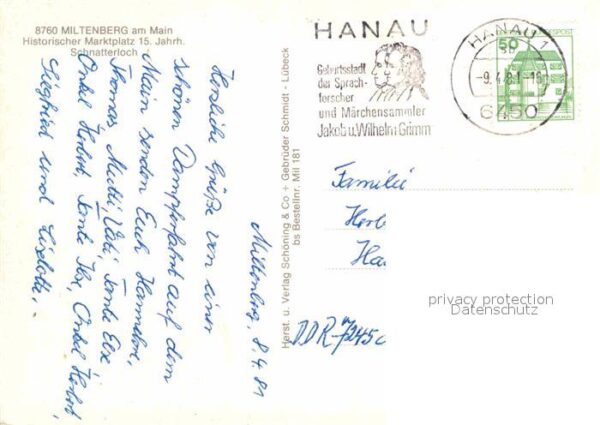 8760 MILTENBERG am Main
Historischer Marktplatz 15. Jahrh.
Schnatterloch
Miltenberg, 8.4.81
Herzliche Grüße von einer
schönen Dampferfahrt auf dem
Main senden Euch Hannelore,
Thomas, Mutti, Vati, Tante Else
Onkel Herbert, Tante Ilse, Onkel Herbert,
Siegfried und Liselotte.
Herst. u. Verlag Schöning & Co + Gebrüder Schmidt - Lübeck
bs Bestellnr. Mil 181
HANAU
Geburtsstadt
der Sprach-
forscher
und Märchensammler
Jakob u. Wilhelm Grimm
HANAU 1
-9.4.81-16
6450
50
Familie
Herb
Ha
DDR-7245
privacy protection
Datenschutz